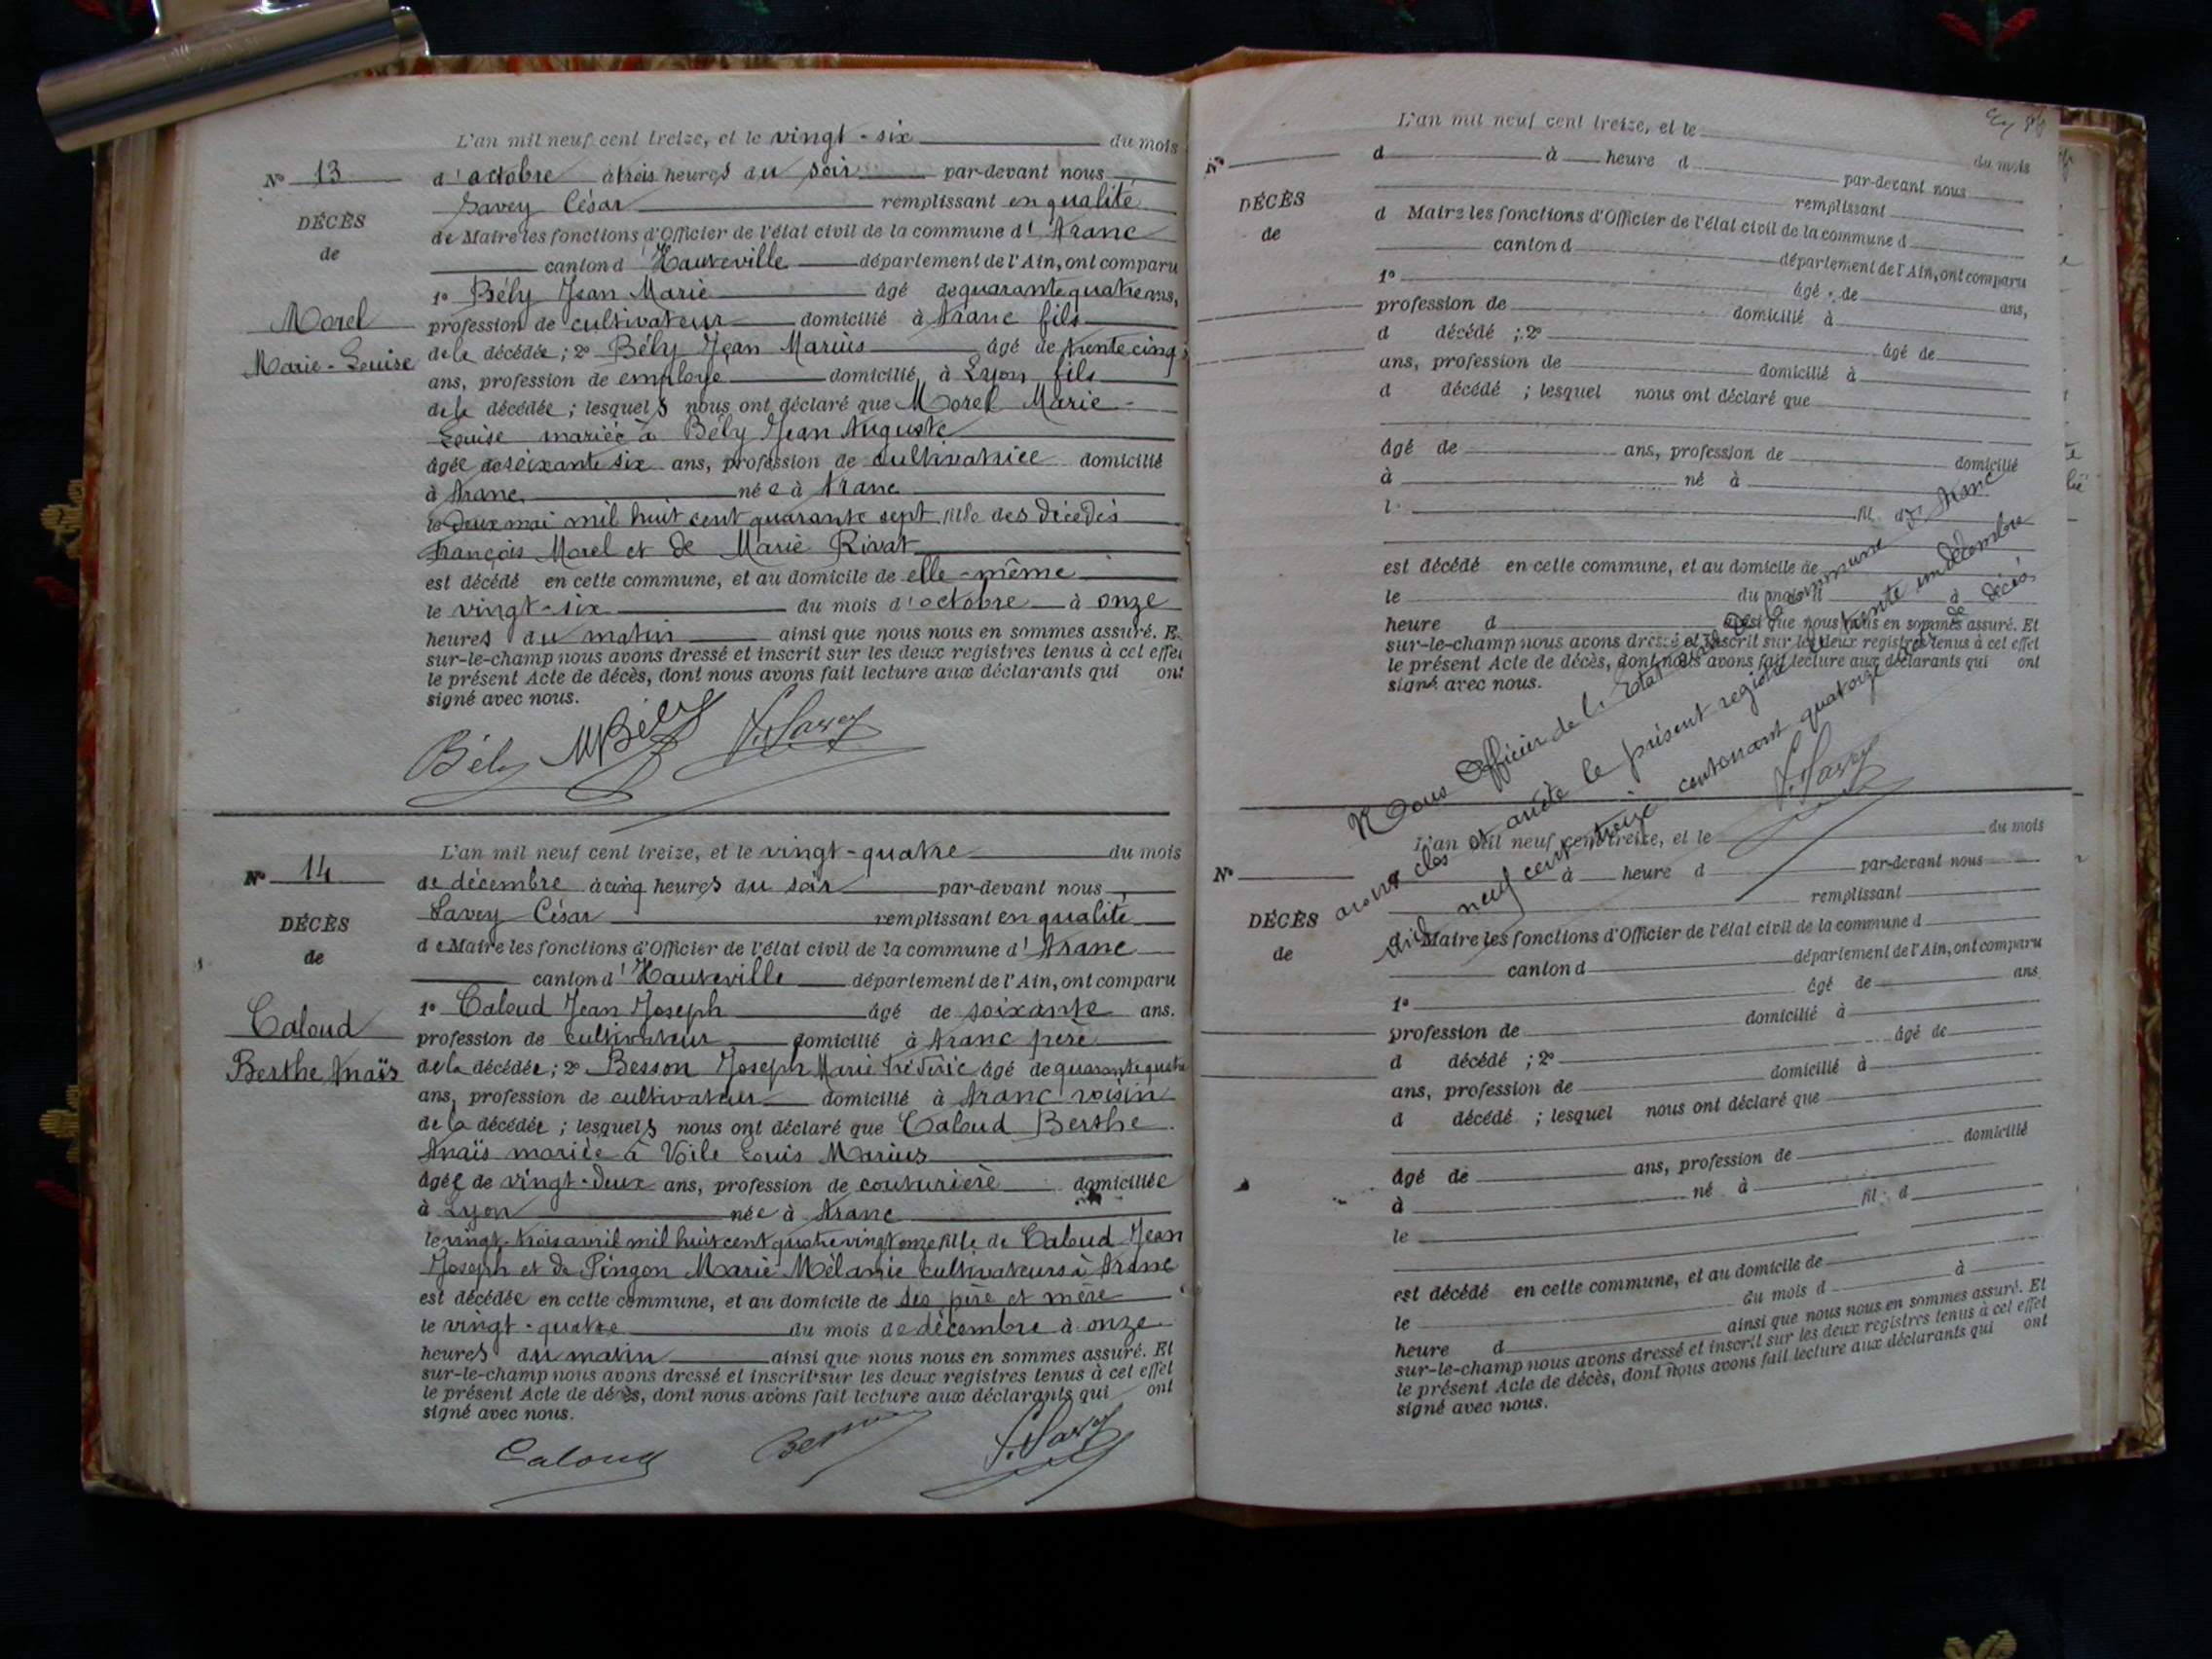 L'an mil neuf cent treize, et le vingt-six du mois
N° 13
d'octobre à trois heures du soir par-devant nous
Savey César remplissant en qualité
DÉCÈS
de Maire les fonctions d'Officier de l'état civil de la commune d'Aranc
de
canton d'Hauteville département de l'Ain, ont comparu
1° Bély Jean Marie âgé de quarante quatre ans,
Morel
profession de cultivateur domicilié à Aranc fils
Marie-Louise
de la décédée ; 2° Bély Jean Marius âgé de trente cinq
ans, profession de employé domicilié à Lyon fils
de la décédée ; lesquels nous ont déclaré que Morel Marie-
Louise mariée à Bély Jean Auguste
âgée de soixante six ans, profession de cultivatrice domicilié
à Aranc née à Aranc
le deux mai mil huit cent quarante sept fille des décédés
François Morel et de Marie Rivat
est décédé en cette commune, et au domicile de elle-même
le vingt-six du mois d'octobre à onze
heures du matin ainsi que nous nous en sommes assuré. E
sur-le-champ nous avons dressé et inscrit sur les deux registres tenus à cet effet
le présent Acte de décès, dont nous avons fait lecture aux déclarants qui ont
signé avec nous.
Bély MBély Savey
L'an mil neuf cent treize, et le vingt-quatre du mois
N° 14
de décembre à cinq heures du soir par-devant nous
Savey César remplissant en qualité
DÉCÈS
de Maire les fonctions d'Officier de l'état civil de la commune d'Aranc
de
canton d'Hauteville département de l'Ain, ont comparu
1° Caloud Jean Joseph âgé de soixante ans.
Caloud
profession de cultivateur domicilié à Aranc père
Berthe Anaïs
de la décédée ; 2° Besson Joseph Marie Frédéric âgé de quarante quatre
ans, profession de cultivateur domicilié à Aranc voisin
de la décédée ; lesquels nous ont déclaré que Caloud Berthe
Anaïs mariée à Voile Louis Marius
âgée de vingt-deux ans, profession de couturière domiciliée
à Lyon née à Aranc
le vingt-trois avril mil huit cent quatre vingt onze fille de Caloud Jean
Joseph et de Pingon Marie Mélanie cultivateurs à Aranc
est décédée en cette commune, et au domicile de ses père et mère
le vingt-quatre du mois de décembre à onze
heures du matin ainsi que nous nous en sommes assuré. Et
sur-le-champ nous avons dressé et inscrit sur les deux registres tenus à cet effet
le présent Acte de décès, dont nous avons fait lecture aux déclarants qui ont
signé avec nous.
Caloud Besson Savey
L'an mil neuf cent treize, et le du mois
N°
d à heure d par-devant nous
remplissant
DÉCÈS
d Maire les fonctions d'Officier de l'état civil de la commune d
de
canton d département de l'Ain, ont comparu
1° âgé de ans,
profession de domicilié à
d décédé ; 2° âgé de
ans, profession de domicilié à
d décédé ; lesquel nous ont déclaré que
âgé de ans, profession de domicilié
à né à
l fil d
est décédé en cette commune, et au domicile de
le du mois d à
heure d ainsi que nous nous en sommes assuré. Et
sur-le-champ nous avons dressé et inscrit sur les deux registres tenus à cet effet
le présent Acte de décès, dont nous avons fait lecture aux déclarants qui ont
signé avec nous.
Nous Officier de l'Etat civil de la commune d'Aranc
avons clos et arrêté le présent registre le trente un décembre
mil neuf cent treize contenant quatorze actes de décès
Savey
L'an mil neuf cent treize, et le du mois
N°
à heure d par-devant nous
remplissant
DÉCÈS
d Maire les fonctions d'Officier de l'état civil de la commune d
de
canton d département de l'Ain, ont comparu
1° âgé de ans
profession de domicilié à
d décédé ; 2° âgé de
ans, profession de domicilié à
d décédé ; lesquel nous ont déclaré que
âgé de ans, profession de domicilié
à né à
le fil d
est décédé en cette commune, et au domicile de
le du mois d à
heure d ainsi que nous nous en sommes assuré. Et
sur-le-champ nous avons dressé et inscrit sur les deux registres tenus à cet effet
le présent Acte de décès, dont nous avons fait lecture aux déclarants qui ont
signé avec nous.